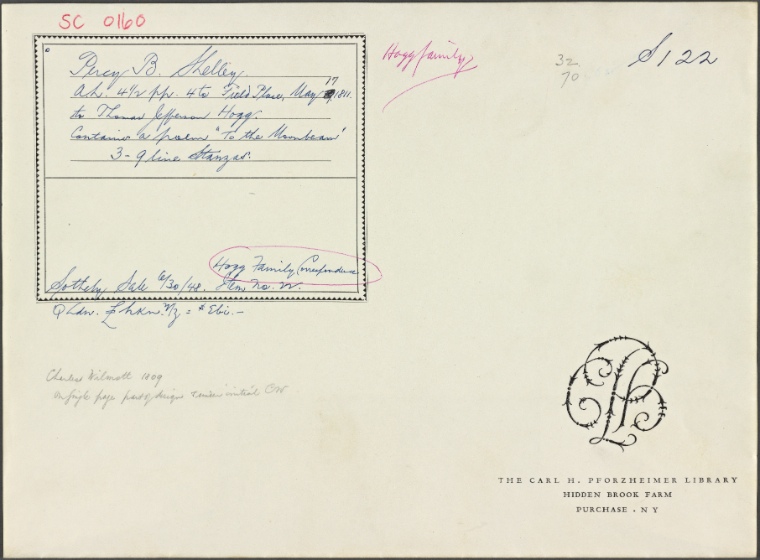 SC 0160
Percy B. Shelley.
A.L. 4½ pp. 4to Field Place, May 17, 1811.
to Thomas Jefferson Hogg.
Contains a poem "To the Moonbeam"
3 - 9 line Stanzas.
Hogg Family Correspondence
Sotheby Sale 6/30/48. Item No.
Hogg family
32
70
S122
Charles Wilmott 1809
CW
THE CARL H. PFORZHEIMER LIBRARY
HIDDEN BROOK FARM
PURCHASE . NY